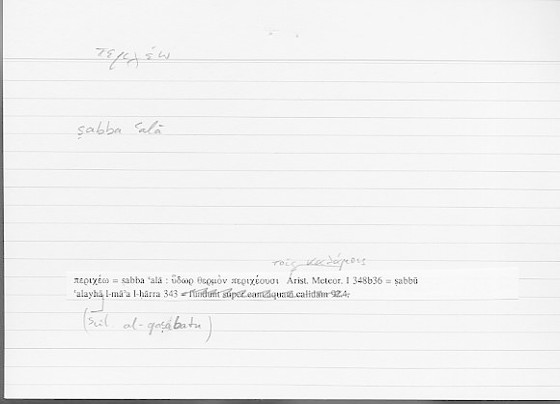 περιχέω
ṣabba ʿalā
τοῖς καλάμοις
περιχέω = ṣabba ʿalā : ὕδωρ θερμὸν περιχέουσι Arist. Meteor. I 348b36 = ṣabbū
ʿalayhā l-māʾa l-ḥārra 343 = fundunt super eam aquam calidam 924.
(scil. al-qaṣabatu)